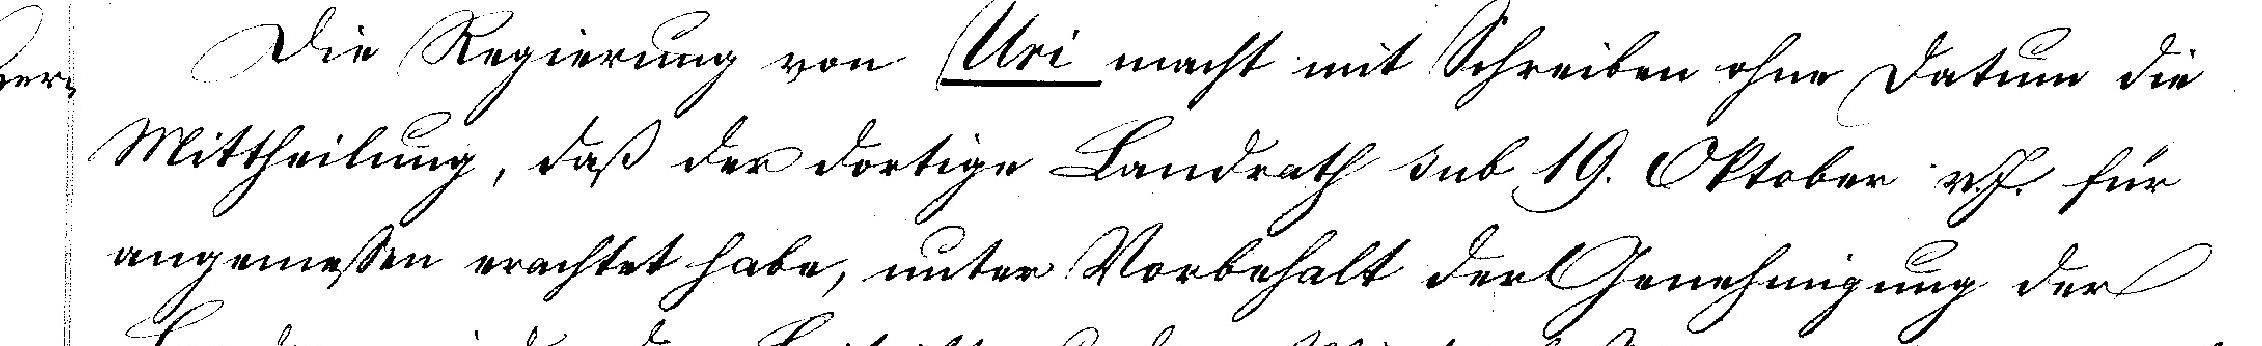 Die Regierung von Uri macht mit Schreiben ohne Datum die
Mittheilung, daß der dortige Landrath sub 19. Oktober v. J. für
angemessen erachtet habe, unter Vorbehalt der Genehmigung der